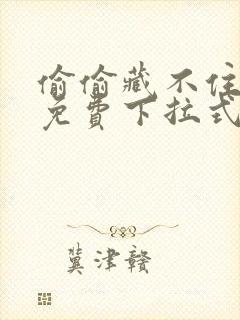 偷偷藏不住
免费下拉式
冀津赣